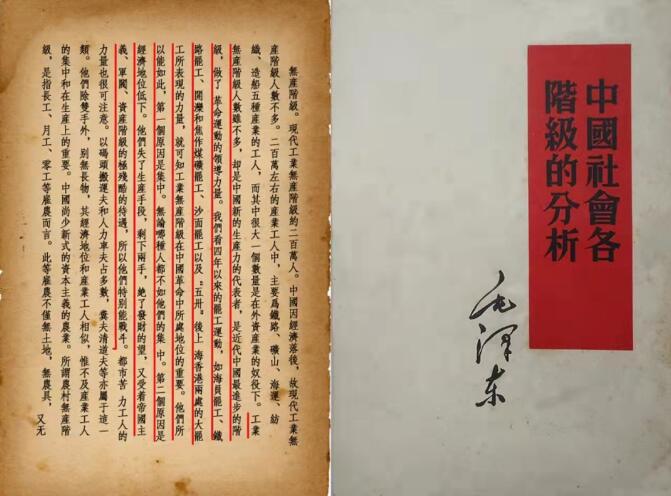 無產階級。現代工業無產階級約二百萬人。中國因經濟落後，故現代工業無
產階級人數不多。二百萬左右的產業工人中，主要爲鐵路、礦山、海運、紡
織、造船五種產業的工人，而其中很大一個數量是在外資產業的奴役下。工業
無產階級人數雖不多，却是中國新的生產力的代表者，是近代中國最進步的階
級，做了革命運動的領導力量。我們看四年以來的罷工運動，如海員罷工、鐵
路罷工、開灤和焦作煤礦罷工、沙面罷工以及“五卅”後上海香港兩處的大罷
工所表現的力量，就可知工業無產階級在中國革命中所處地位的重要。他們所
以能如此，第一個原因是集中。無論哪種人都不如他們的集中。第二個原因是
經濟地位低下。他們失了生產手段，剩下兩手，絶了發財的望，又受着帝國主
義、軍閥、資產階級的極殘酷的待遇，所以他們特別能戰斗。都市苦力工人的
力量也很可注意。以碼頭搬運夫和人力車夫占多數，糞夫清道夫等亦屬于這一
類。他們除雙手外，別無長物，其經濟地位和產業工人相似，惟不及產業工人
的集中和在生產上的重要。中國尚少新式的資本主義的農業。所謂農村無產階
級，是指長工、月工、零工等雇農而言。此等雇農不僅無土地，無農具，又无
中國社會各
階級的分析
毛澤东